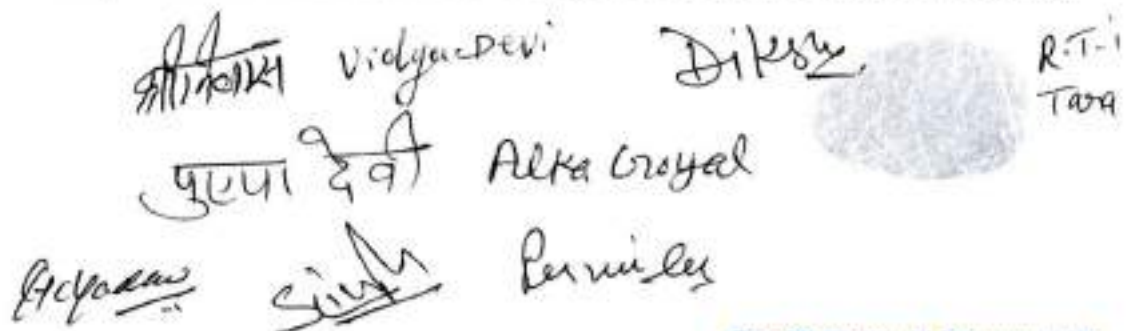 श्रीनिवास Vidya Devi Diksha R.T.i
Tara
पुष्पा देवी Alka Goyal
Singh